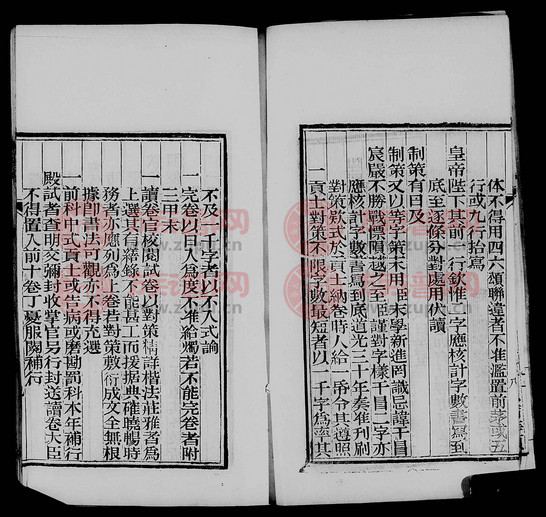 體不得用四六頌聯違者不准濫置前
行或九行抬寫
皇帝陛下其前一行欽惟二字應核計字數書寫到
底至逐條分對處用伏讀
制策有曰及
制策又以等字策末用臣末學新進罔識忌諱干冒
宸嚴不勝戰慄隕越之至臣謹對字樣干冒二字亦
應核計字數書寫到底道光三十年奏准刊刻
對策款式於貢士納卷時人給一帋令其遵照
一貢士對策不限字數最短者以一千字為率其
不及一千字者以不入式論
一完卷以日入為度不准給燭若不能完卷者附
三甲末
一讀卷官校閱試卷以對策精詳楷法莊雅者為
上選其有繕錄不能甚工而援據典確曉暢時
務者亦應列為上卷若對策敷衍成文全無根
據即書法可觀亦不得充選
一前科中式貢士或告病或磨勘罰科本年補行
殿試者查明交彌封收掌官另行封送讀卷大臣
不得置入前十卷丁憂服闋補行